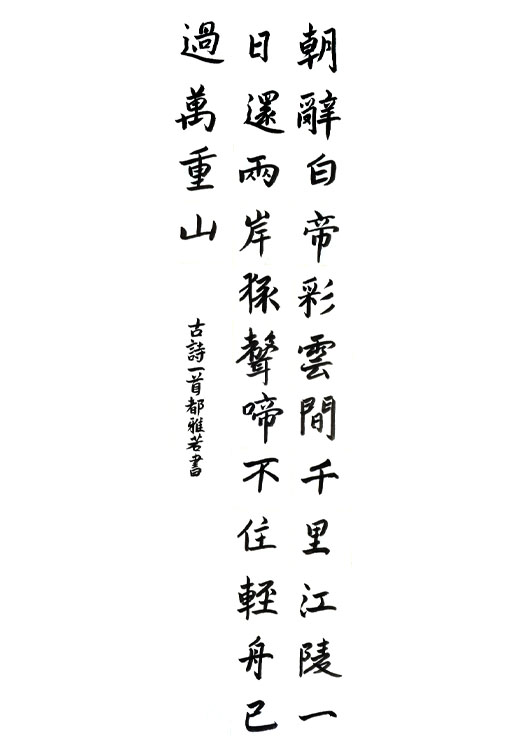 朝辭白帝彩雲間千里江陵一
日還兩岸猿聲啼不住輕舟已
過萬重山
古詩一首都雅若書